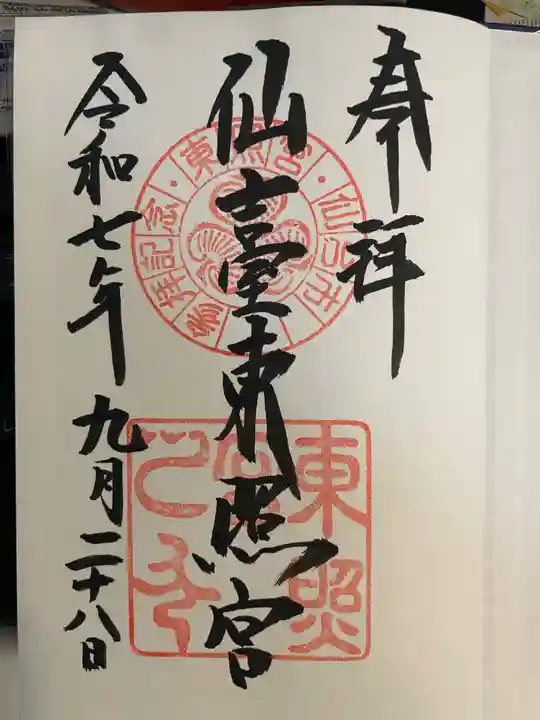 奉拝
仙臺東照宮
令和七年 九月二十八日
東照宮・仙台市
参拝記念
東照宮